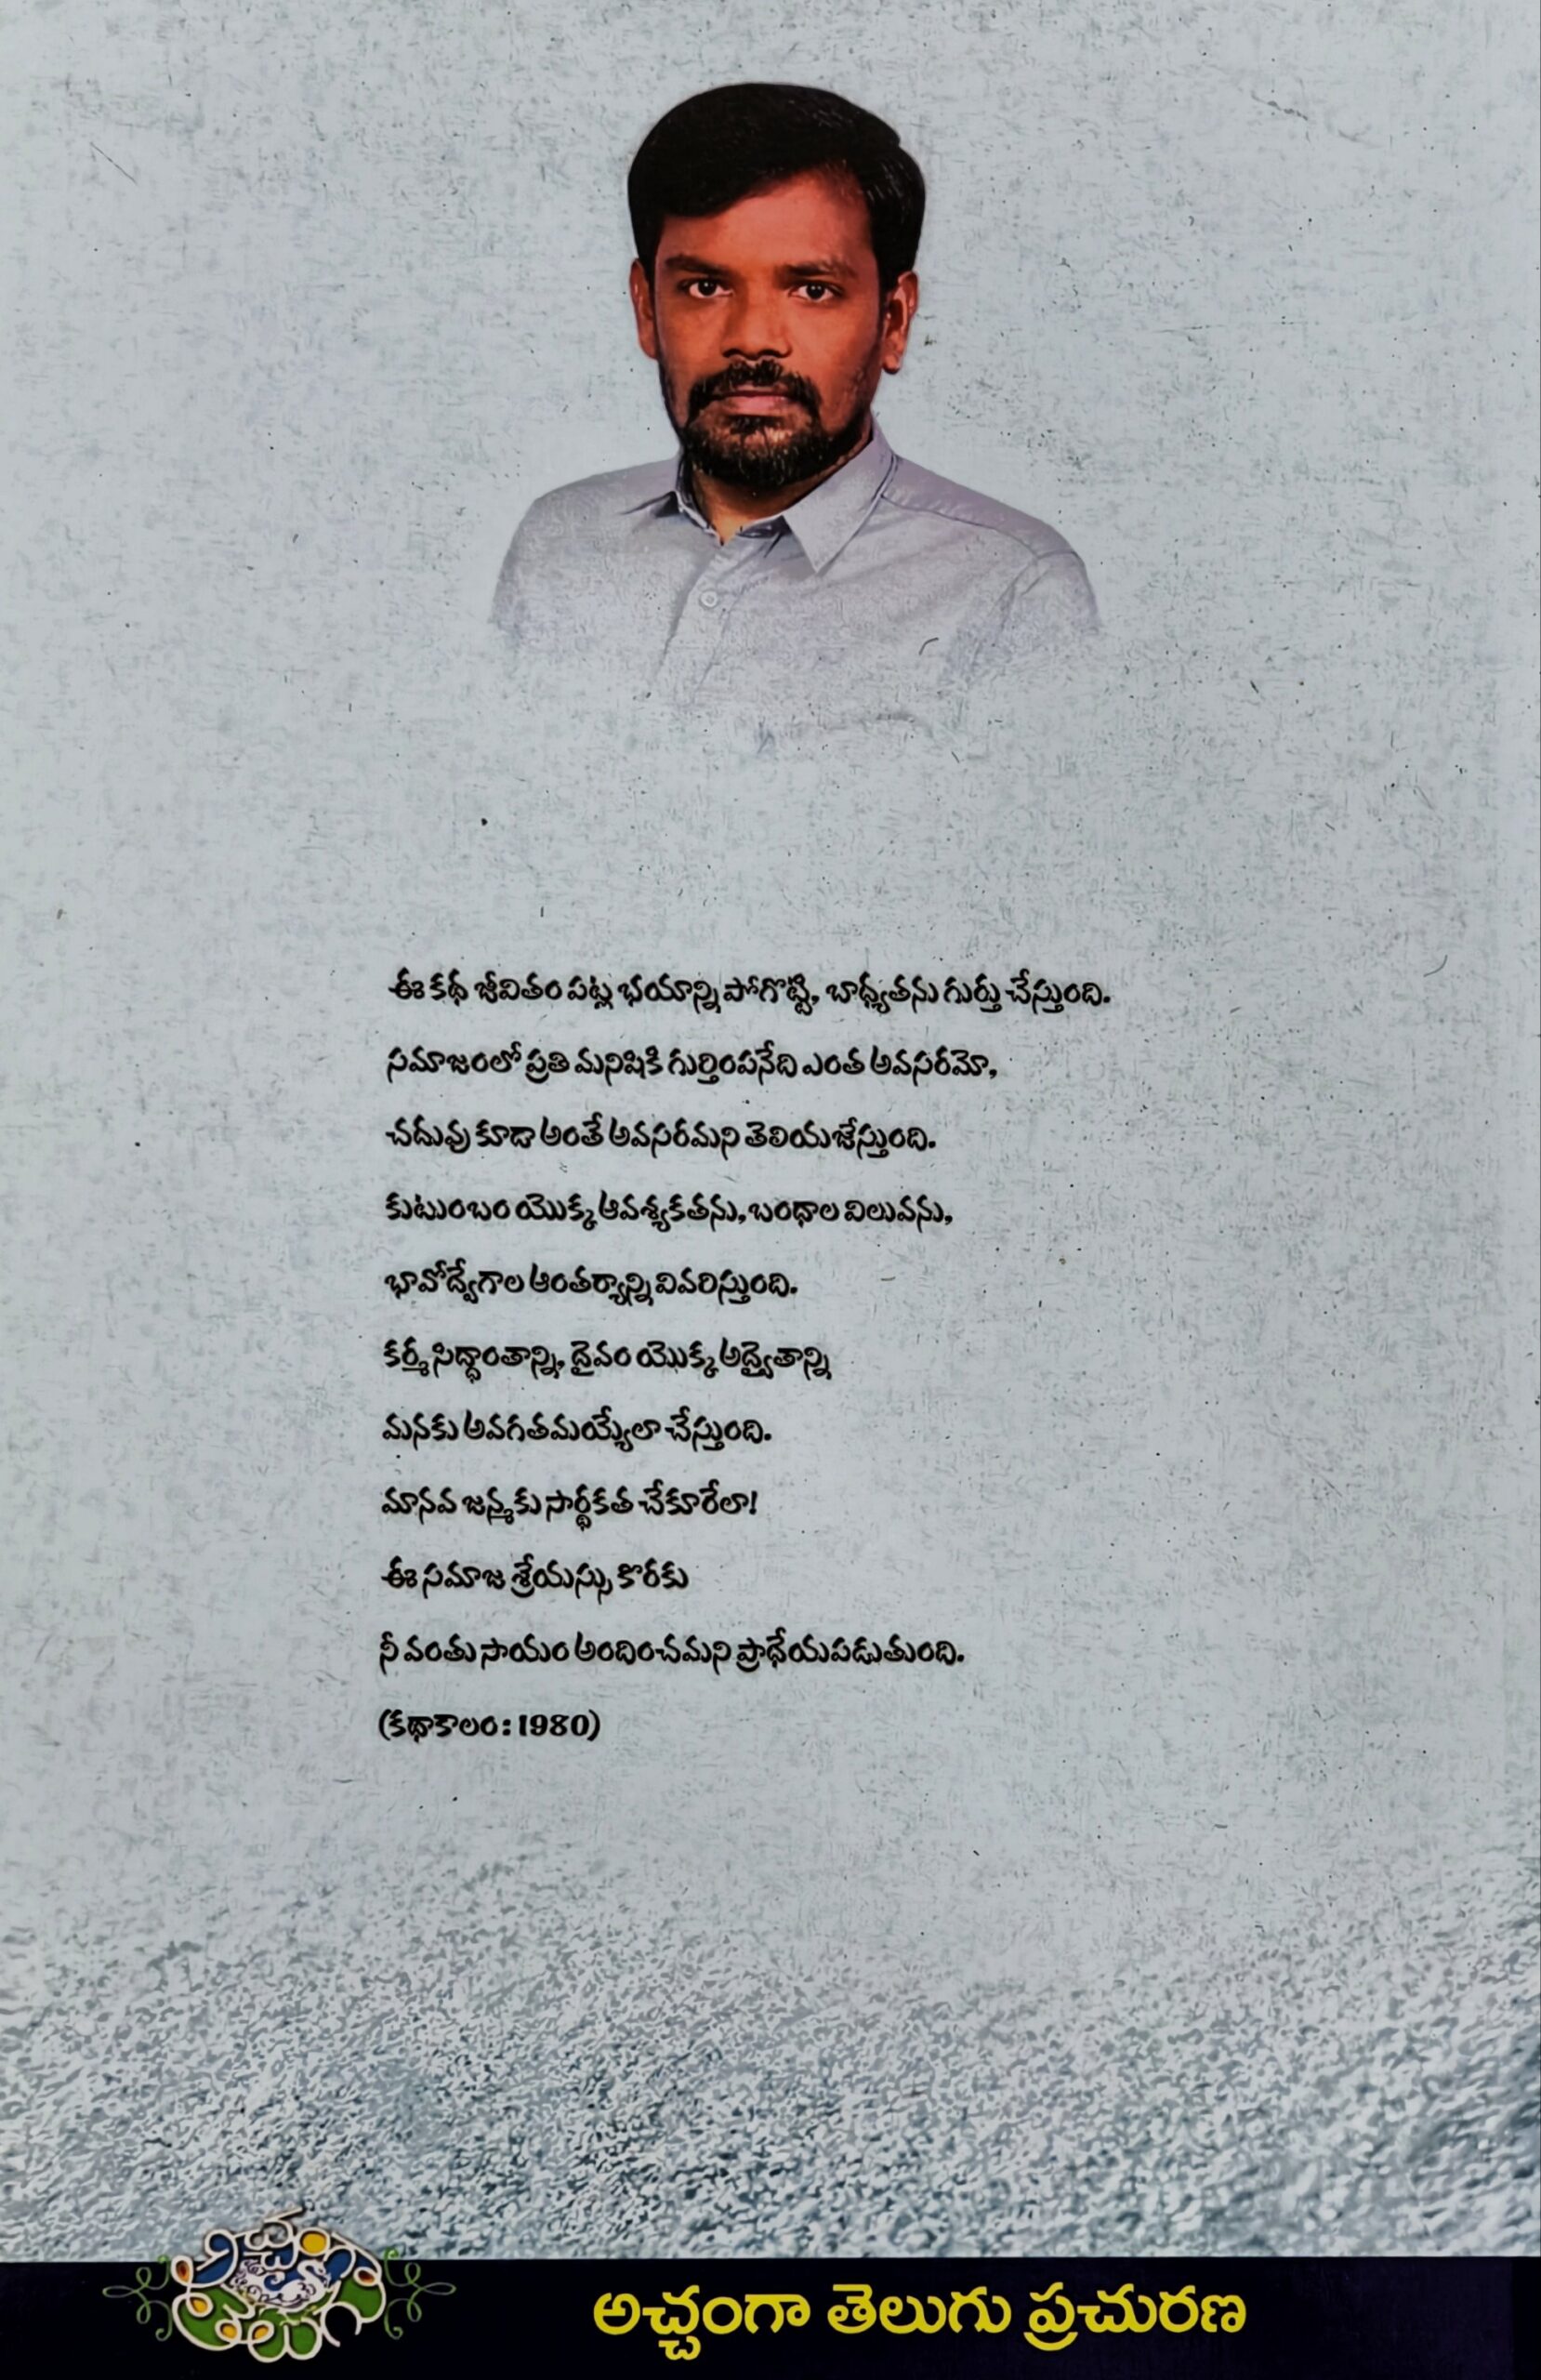 ఈ కథ జీవితం పట్ల భయాన్ని పోగొట్టి, బాధ్యతను గుర్తు చేస్తుంది.
సమాజంలో ప్రతి మనిషికి గుర్తింపనేది ఎంత అవసరమో,
చదువు కూడా అంతే అవసరమని తెలియజేస్తుంది.
కుటుంబం యొక్క ఆవశ్యకతను, బంధాల విలువను,
భావోద్వేగాల ఆంతర్యాన్ని వివరిస్తుంది.
కర్మ సిద్ధాంతాన్ని, దైవం యొక్క అద్వైతాన్ని
మనకు అవగతమయ్యేలా చేస్తుంది.
మానవ జన్మకు సార్థకత చేకూరేలా!
ఈ సమాజ శ్రేయస్సు కొరకు
నీ వంతు సాయం అందించమని ప్రాధేయపడుతుంది.
(కథాకాలం : 1980)
అచ్చంగా తెలుగు
అచ్చంగా తెలుగు ప్రచురణ